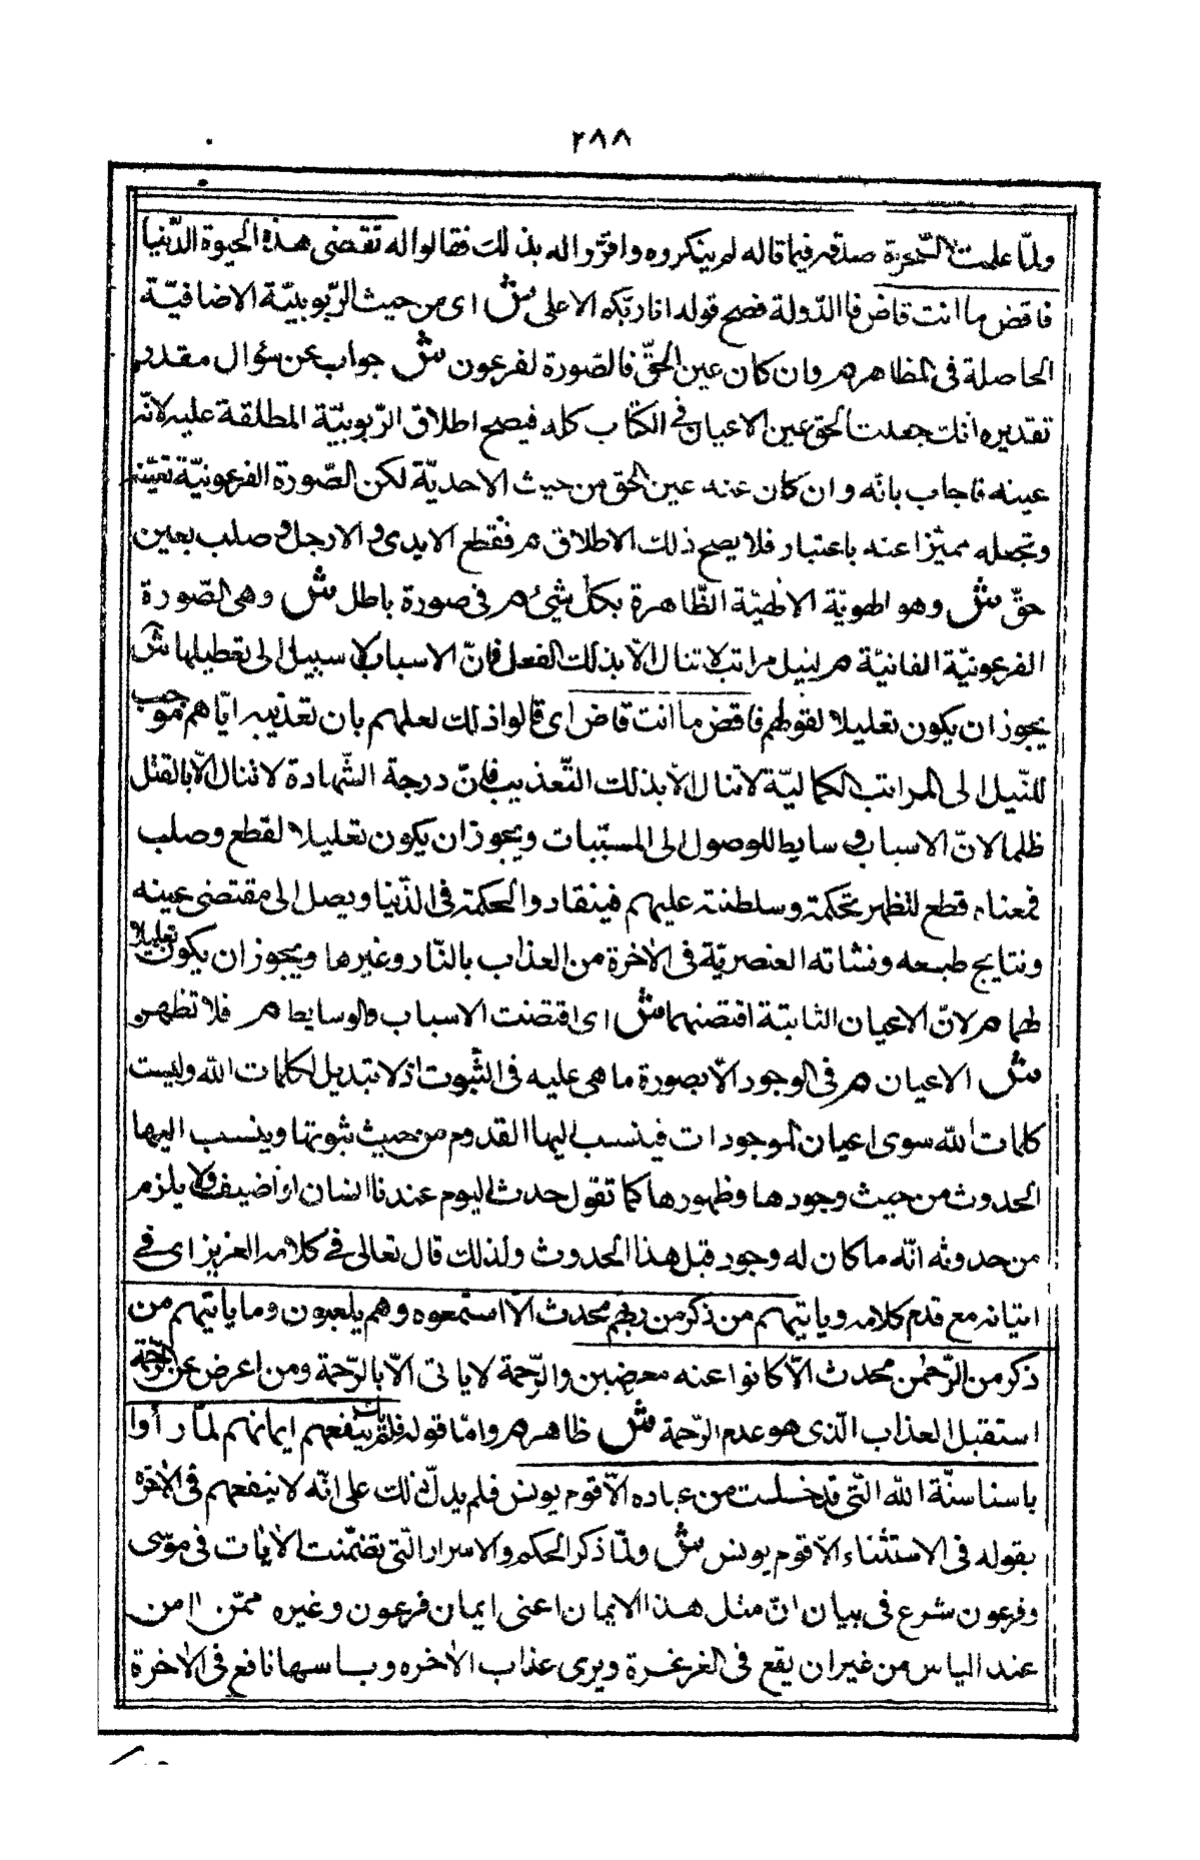 ٢٨٨
ولمّا علمت السّحرة صدقه فيما قاله لم ينكروه واقرّوا له بذلك فقالوا له تقضى هذه الحيوة الدّنيا
فاقض ما انت قاض فالدّولة فصح قوله انا ربّكم الاعلى ش اى من حيث الرّبوبيّة الاضافيّة
الحاصلة فى المظاهر م وان كان عين الحقّ فالصّورة لفرعون ش جواب عن سؤال مقدر
تقديره انك جعلت الحق عين الاعيان فى الكتاب كله فيصح اطلاق الرّبوبيّة المطلقة عليه لانّه
عينه فاجاب بانّه وان كان عنه عين الحق من حيث الاحديّة لكن الصّورة الفرعونيّة تعيّنه
وتجعله مميّزا عنه باعتبار فلا يصح ذلك الاطلاق م فقطع الايدى والارجل وصلب بعين
حقّ ش وهو الهويّة الالهيّة الظّاهرة بكل شئ م فى صورة باطل ش وهى الصّورة
الفرعونيّة الفانيّة م لنيل مراتب لا تنال الّا بذلك الفعل فانّ الاسباب لا سبيل الى تعطيلها ش
يجوز ان يكون تعليلا لقولهم فاقض ما انت قاض اى قالوا ذلك لعلمهم بان تعذيبه ايّاهم موجب
للنّيل الى المراتب الكماليّة لا تنال الّا بذلك التّعذيب فانّ درجة الشّهادة لا تنال الّا بالقتل
ظلما لانّ الاسباب وسايط للوصول الى المسبّبات ويجوز ان يكون تعليلا لقطع وصلب
فمعناه قطع لتظهر تحكمه وسلطنته عليهم فينقاد والحكمة فى الدّنيا ويصل الى مقتضى عينه
ونتايج طبعه ونشاته العنصريّة فى الاخرة من العذاب بالنّار وغيرها ويجوز ان يكون تعليلا
لهما م لانّ الاعيان الثابتة اقتضتها ش اى اقتضت الاسباب والوسايط م فلا تظهر
ش الاعيان م فى الوجود الّا بصورة ما هى عليه فى الثّبوت اذ لا تبديل لكلمات الله وليست
كلمات الله سوى اعيان الموجودات فينسب اليها القدوم من حيث ثبوتها وينسب اليها
الحدوث من حيث وجودها وظهورها كما تقول حدث اليوم عندنا انسان او ضيف ولا يلزم
من حدوثه انّه ما كان له وجود قبل هذا الحدوث ولذلك قال تعالى فى كلامه العزيز اى فى
اتيانه مع قدم كلامه وياتيهم من ذكر من ربهم محدث الّا استمعوه وهم يلعبون وما ياتيهم من
ذكر من الرّحمن محدث الّا كانوا عنه معرضين والرّحمة لا ياتى الّا بالرّحمة ومن اعرض عن الرّحمة
استقبل العذاب الّذى هو عدم الرّحمة ش ظاهر م وامّا قوله فلم يك ينفعهم ايمانهم لمّا رأوا
باسنا سنّة الله التّى قد خلت من عباده الّا قوم يونس فلم يدلّ ذلك على انّه لا ينفعهم فى الاخرة
بقوله فى الاستثناء الّا قوم يونس ش ولمّا ذكر الحكم والاسرار التّى تضمّنت الايات فى موسى
وفرعون شرع فى بيان انّ مثل هذا الايمان اعنى ايمان فرعون وغيره ممّن امن
عند الياس من غير ان يقع فى الغرغرة ويرى عذاب الاخره وباسها نافع فى الاخرة